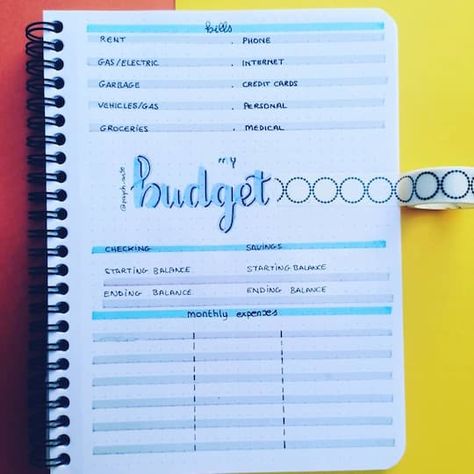 bills
RENT . PHONE
GAS/ELECTRIC . INTERNET
GARBAGE . CREDIT CARDS
VEHICLES/GAS . PERSONAL
GROCERIES . MEDICAL
my
budget
CHECKING SAVINGS
STARTING BALANCE STARTING BALANCE
ENDING BALANCE ENDING BALANCE
monthly expenses